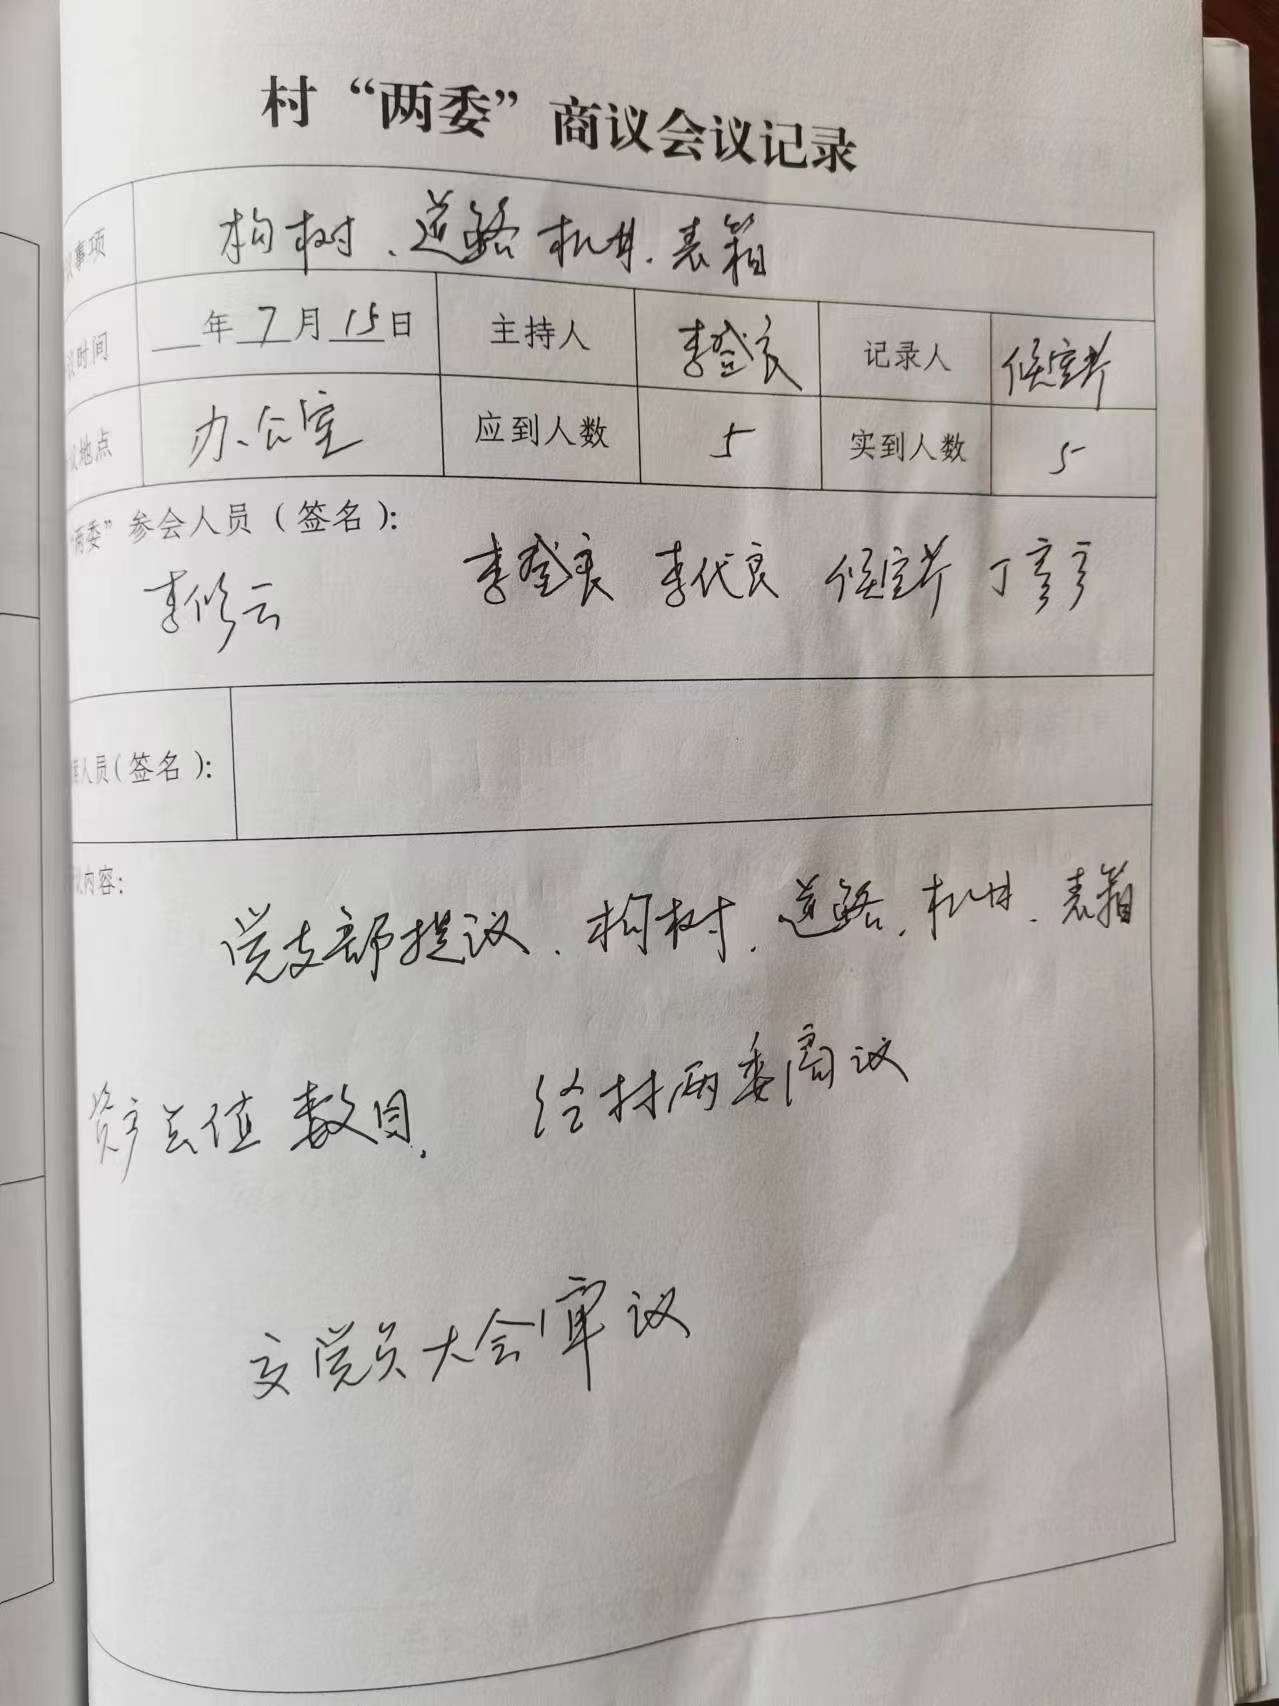 村“两委”商议会议记录
事项 构树、道路 机井、表箱
时间 年7月15日 主持人 李登良 记录人
议地点 办公室 应到人数 5 实到人数 5
“两委”参会人员（签名）：
李修云 李登良 李代良 丁
人员（签名）：
内容：
党支部提议、构树、道路、机井、表箱
资产总值 数目， 给村两委商议
交党员大会审议